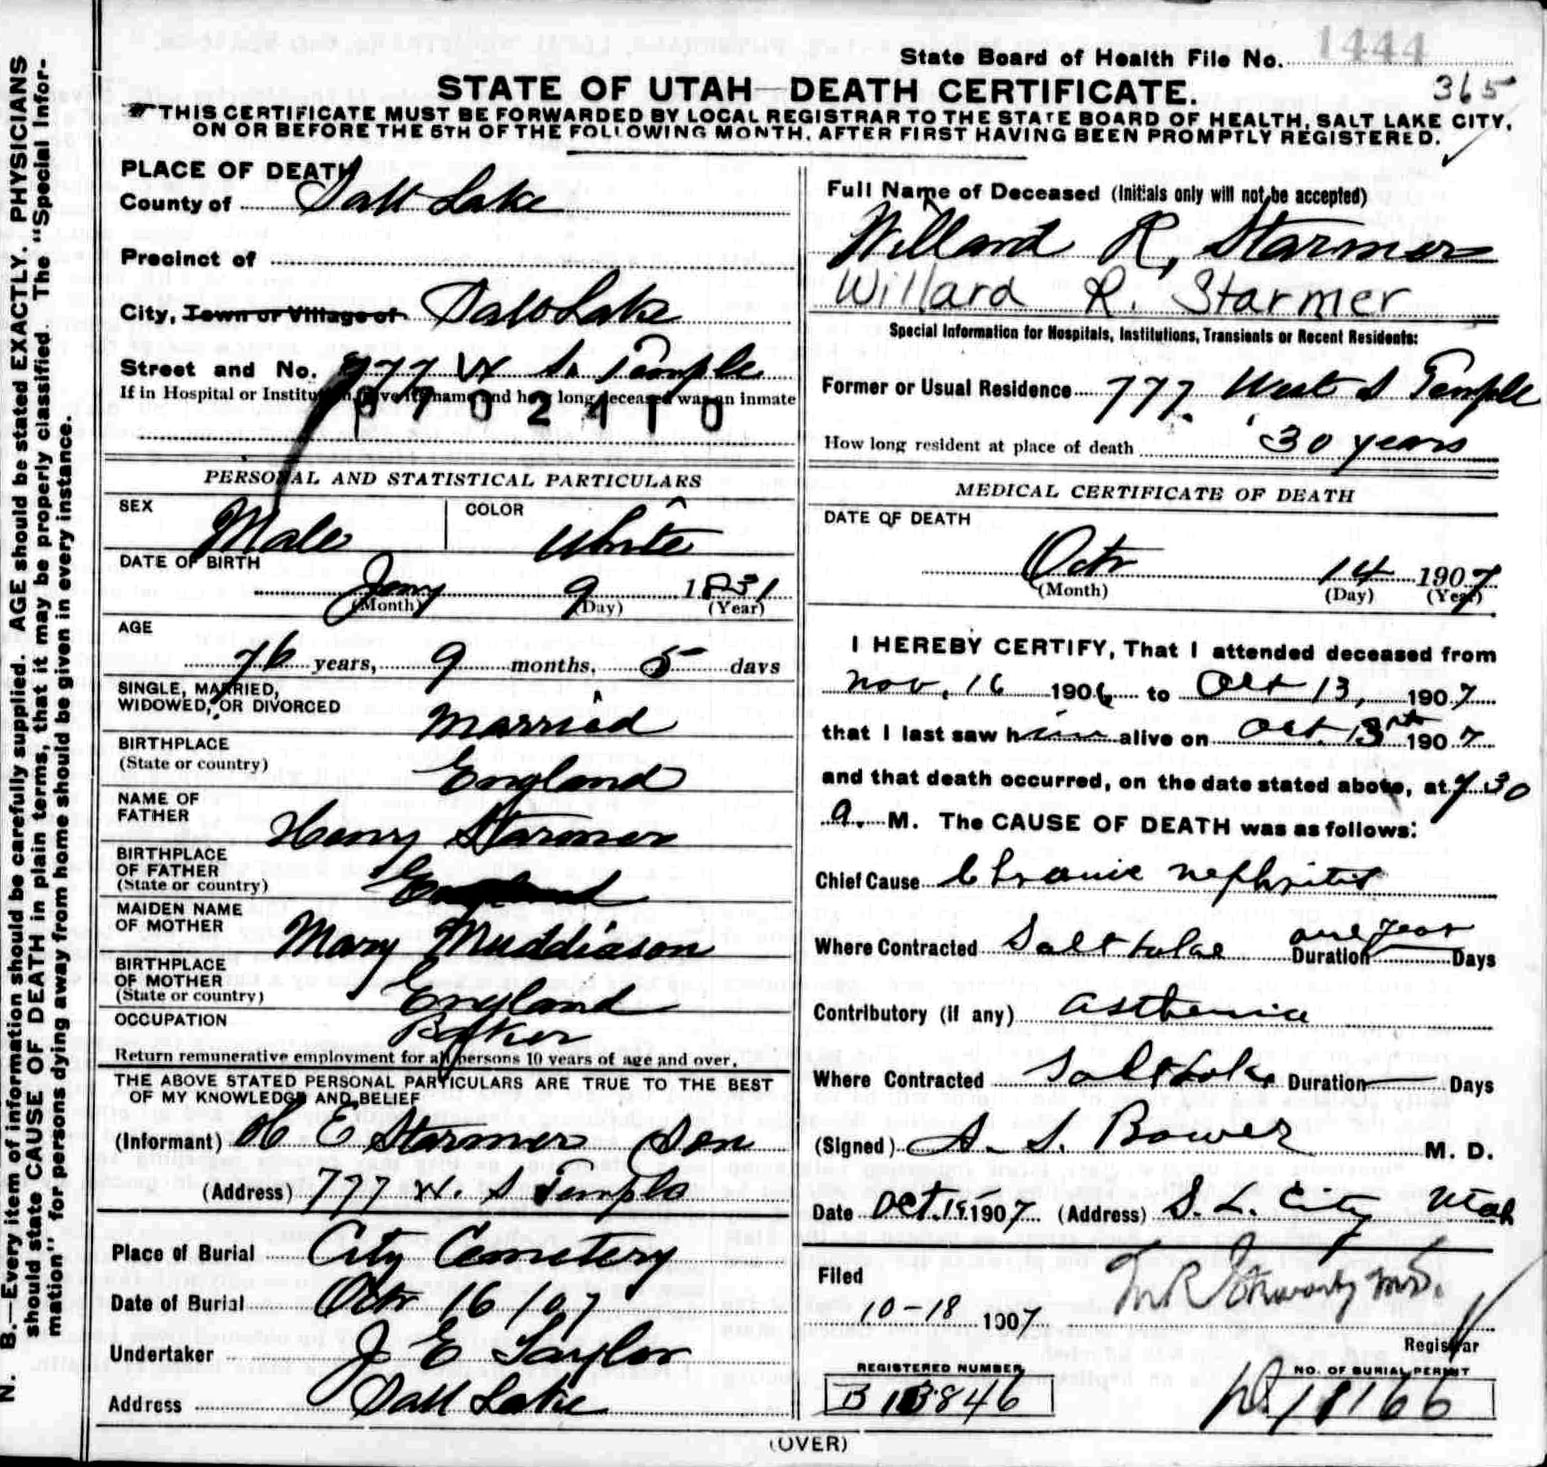 State Board of Health File No. 1444
STATE OF UTAH—DEATH CERTIFICATE. 365
THIS CERTIFICATE MUST BE FORWARDED BY LOCAL REGISTRAR TO THE STATE BOARD OF HEALTH, SALT LAKE CITY,
ON OR BEFORE THE 5TH OF THE FOLLOWING MONTH, AFTER FIRST HAVING BEEN PROMPTLY REGISTERED.
N. B.—Every item of information should be carefully supplied. AGE should be stated EXACTLY. PHYSICIANS
should state CAUSE OF DEATH in plain terms, that it may be properly classified. The "Special Infor-
mation" for persons dying away from home should be given in every instance.
PLACE OF DEATH
County of Salt Lake
Precinct of
City, Town or Village of Salt Lake
Street and No. 777 W S. Temple
If in Hospital or Institution, give its name and how long deceased was an inmate
0702410
PERSONAL AND STATISTICAL PARTICULARS
SEX Male COLOR White
DATE OF BIRTH
Jany 9 1831
(Month) (Day) (Year)
AGE
76 years, 9 months, 5 days
SINGLE, MARRIED,
WIDOWED, OR DIVORCED Married
BIRTHPLACE
(State or country) England
NAME OF
FATHER Henry Starmer
BIRTHPLACE
OF FATHER
(State or country) England
MAIDEN NAME
OF MOTHER Mary Muddiason
BIRTHPLACE
OF MOTHER
(State or country) England
OCCUPATION Baker
Return remunerative employment for all persons 10 years of age and over.
THE ABOVE STATED PERSONAL PARTICULARS ARE TRUE TO THE BEST
OF MY KNOWLEDGE AND BELIEF
(Informant) H E Starmer Son
(Address) 777 W. S Temple
Place of Burial City Cemetery
Date of Burial Octr 16 / 07
Undertaker J E Taylor
Address Salt Lake
Full Name of Deceased (Initials only will not be accepted)
Willard R, Starmer
Willard R. Starmer
Special Information for Hospitals, Institutions, Transients or Recent Residents:
Former or Usual Residence 777. West S Temple
How long resident at place of death 30 years
MEDICAL CERTIFICATE OF DEATH
DATE OF DEATH
Octr 14 1907
(Month) (Day) (Year)
I HEREBY CERTIFY, That I attended deceased from
Nov. 16 1906 to Oct 13, 1907
that I last saw him alive on Oct. 13th 1907
and that death occurred, on the date stated above, at 7.30
a. M. The CAUSE OF DEATH was as follows:
Chief Cause Chronic nephritis
Where Contracted Salt Lake Duration one year Days
Contributory (if any) asthenia
Where Contracted Salt Lake Duration — Days
(Signed) S. S. Bower M. D.
Date Oct. 15 1907 (Address) S. L. City Utah
Filed
10-18 1907 M.D.
Registrar
REGISTERED NUMBER
B 13846
NO. OF BURIAL PERMIT
18166
(OVER)